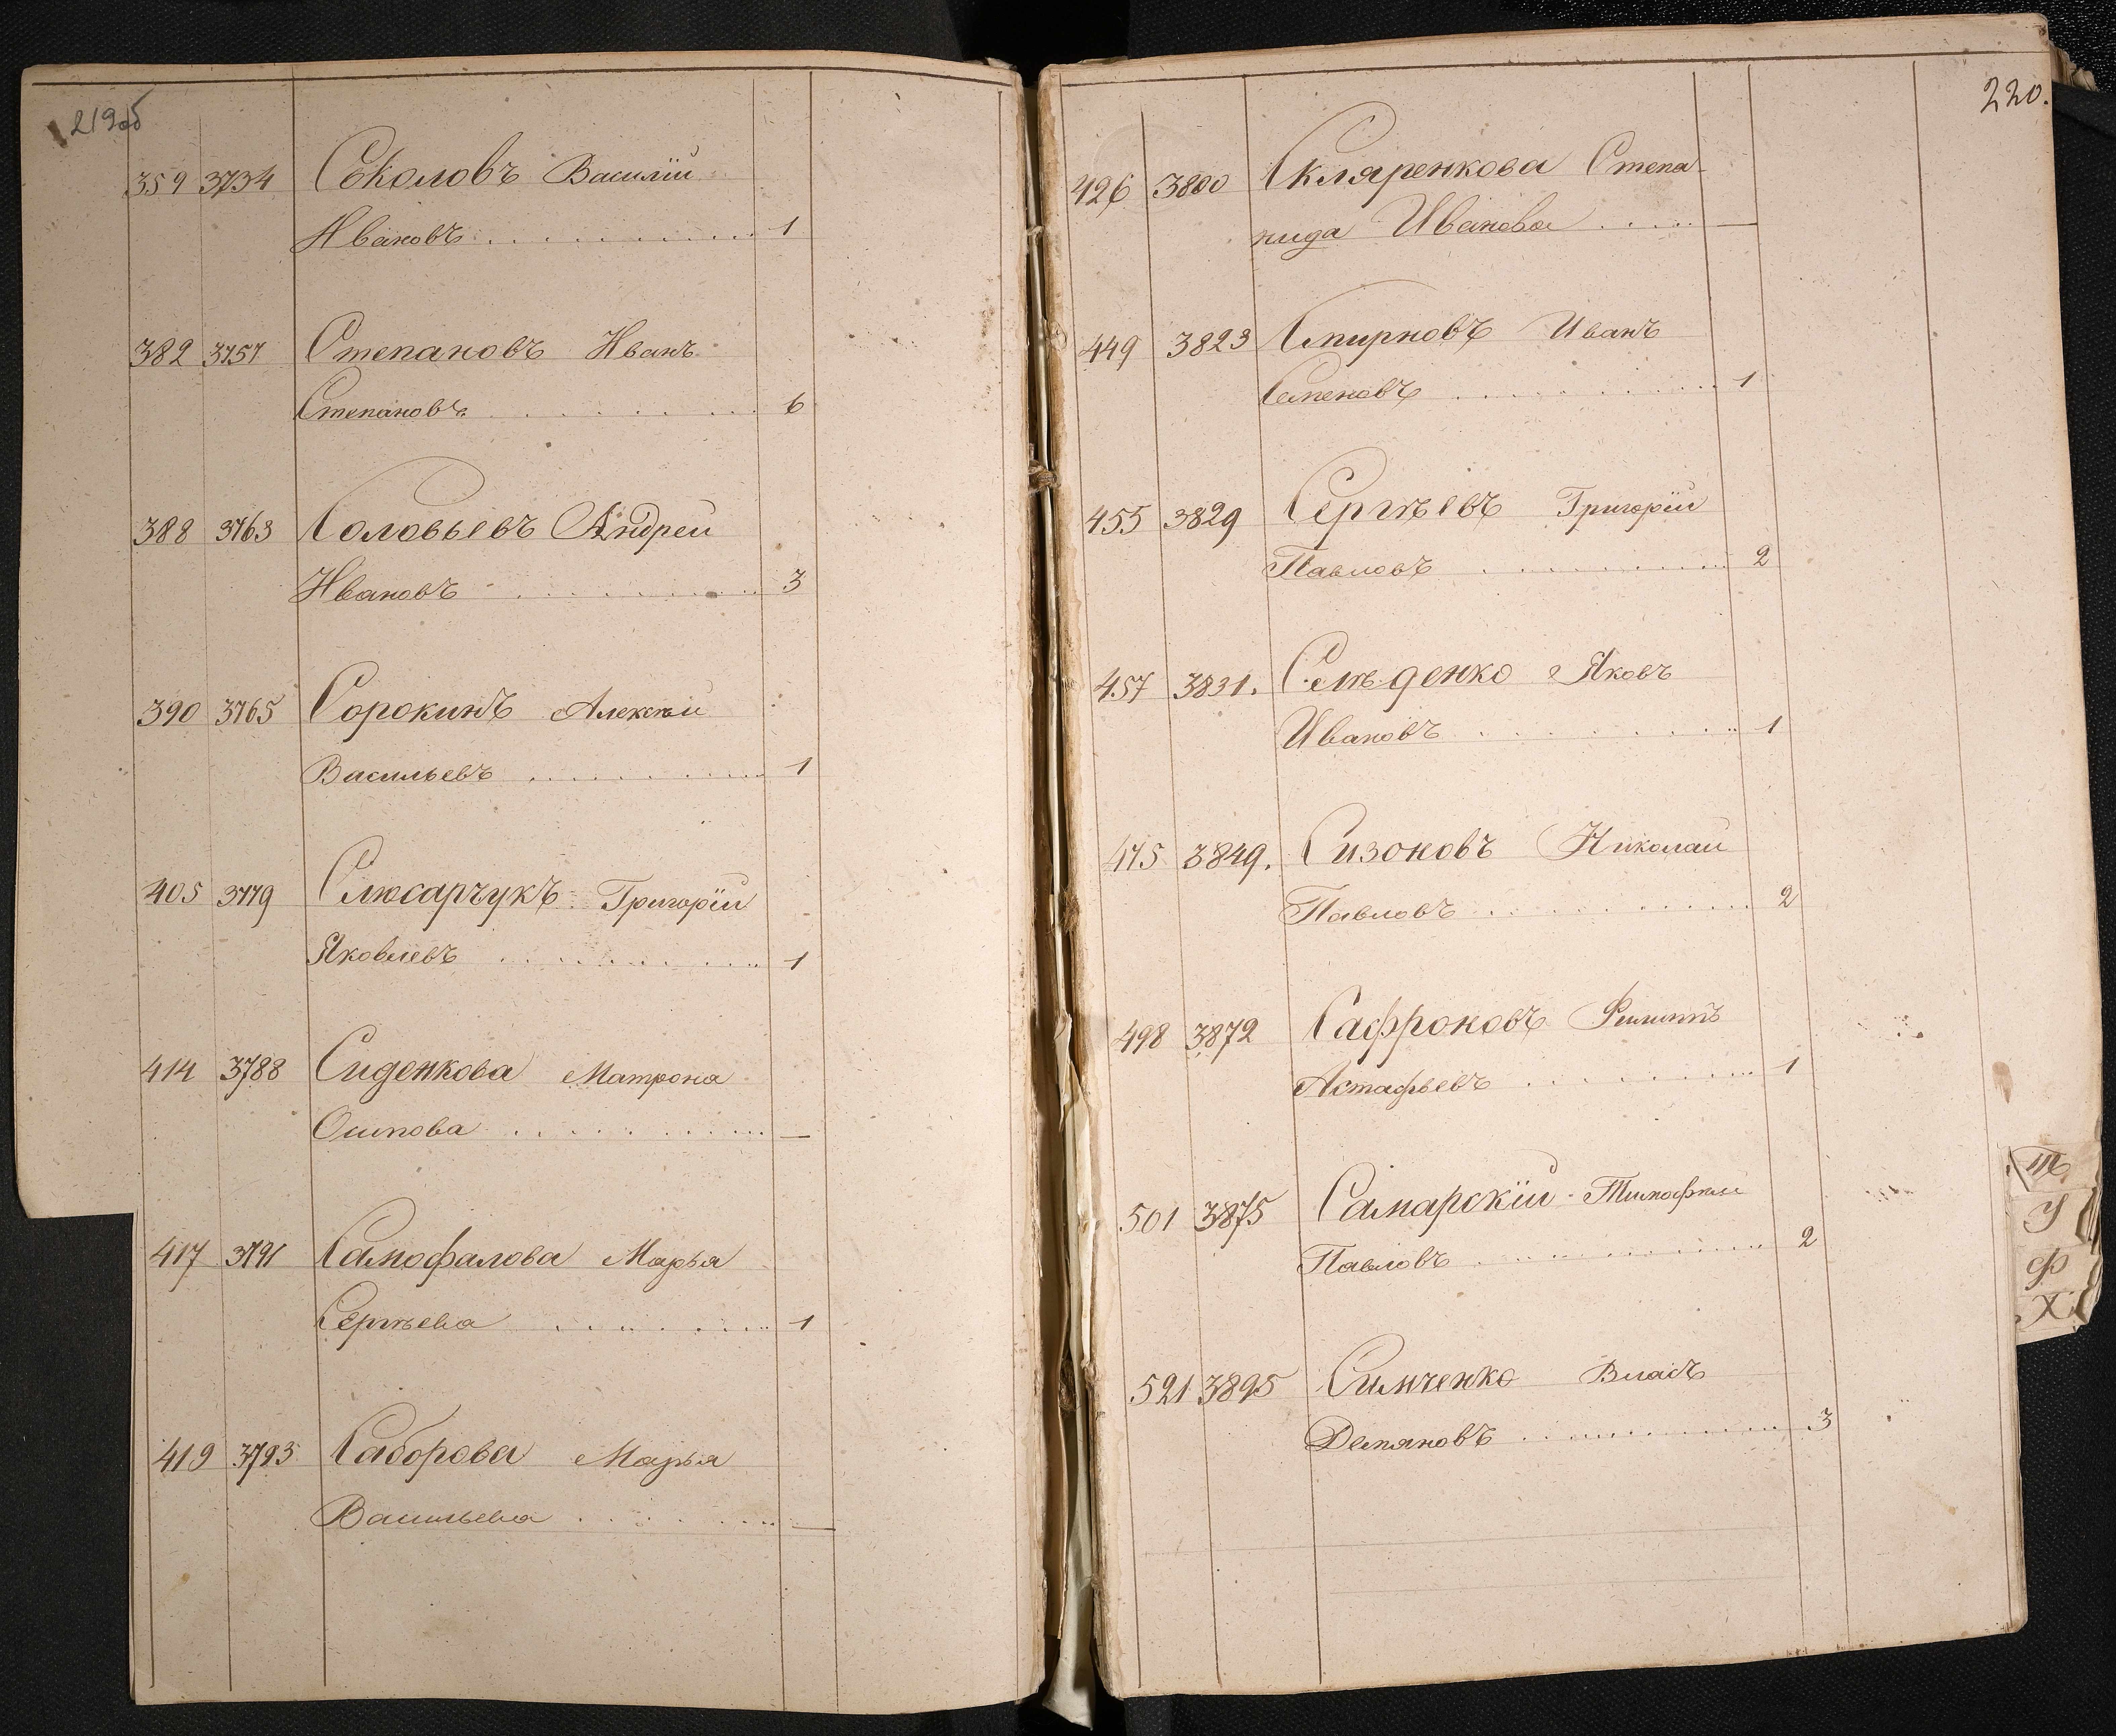 219об
359 3734 Соколовъ Василій
Ивановъ . . . . . . . . . . 1
382 3757 Степановъ Иванъ
Степановъ . . . . . . . . . . 6
388 3763 Соловьевъ Андрей
Ивановъ . . . . . . . . . . 3
390 3765 Сорокинъ Алексѣй
Васильевъ . . . . . . . . . . 1
405 3779 Слюсарчукъ Григорій
Яковлевъ . . . . . . . . . . 1
414 3788 Сиденкова Матрона
Осипова . . . . . . . . . . —
417 3791 Самофалова Марья
Сергѣева . . . . . . . . . . 1
419 3793 Саборова Марья
Васильева . . . . . . . . . . —
220.
426 3800 Скляренкова Степа-
нида Иванова . . . . . —
449 3823 Смирновъ Иванъ
Семеновъ . . . . . . . . . . 1
455 3829 Сергѣевъ Григорій
Павловъ . . . . . . . . . . 2
457 3831. Яковъ
Ивановъ . . . . . . . . . . 1
475 3849. Сизоновъ Николай
Павловъ . . . . . . . . . . 2
498 3872 Сафроновъ Филиппъ
Астафьевъ . . . . . . . . . . 1
501 3875 Самарскій Тимофей
Павловъ . . . . . . . . . . 2
521 3895 Симченко Власъ
Демяновъ . . . . . . . . . . 3
Т
У
Ф
Х